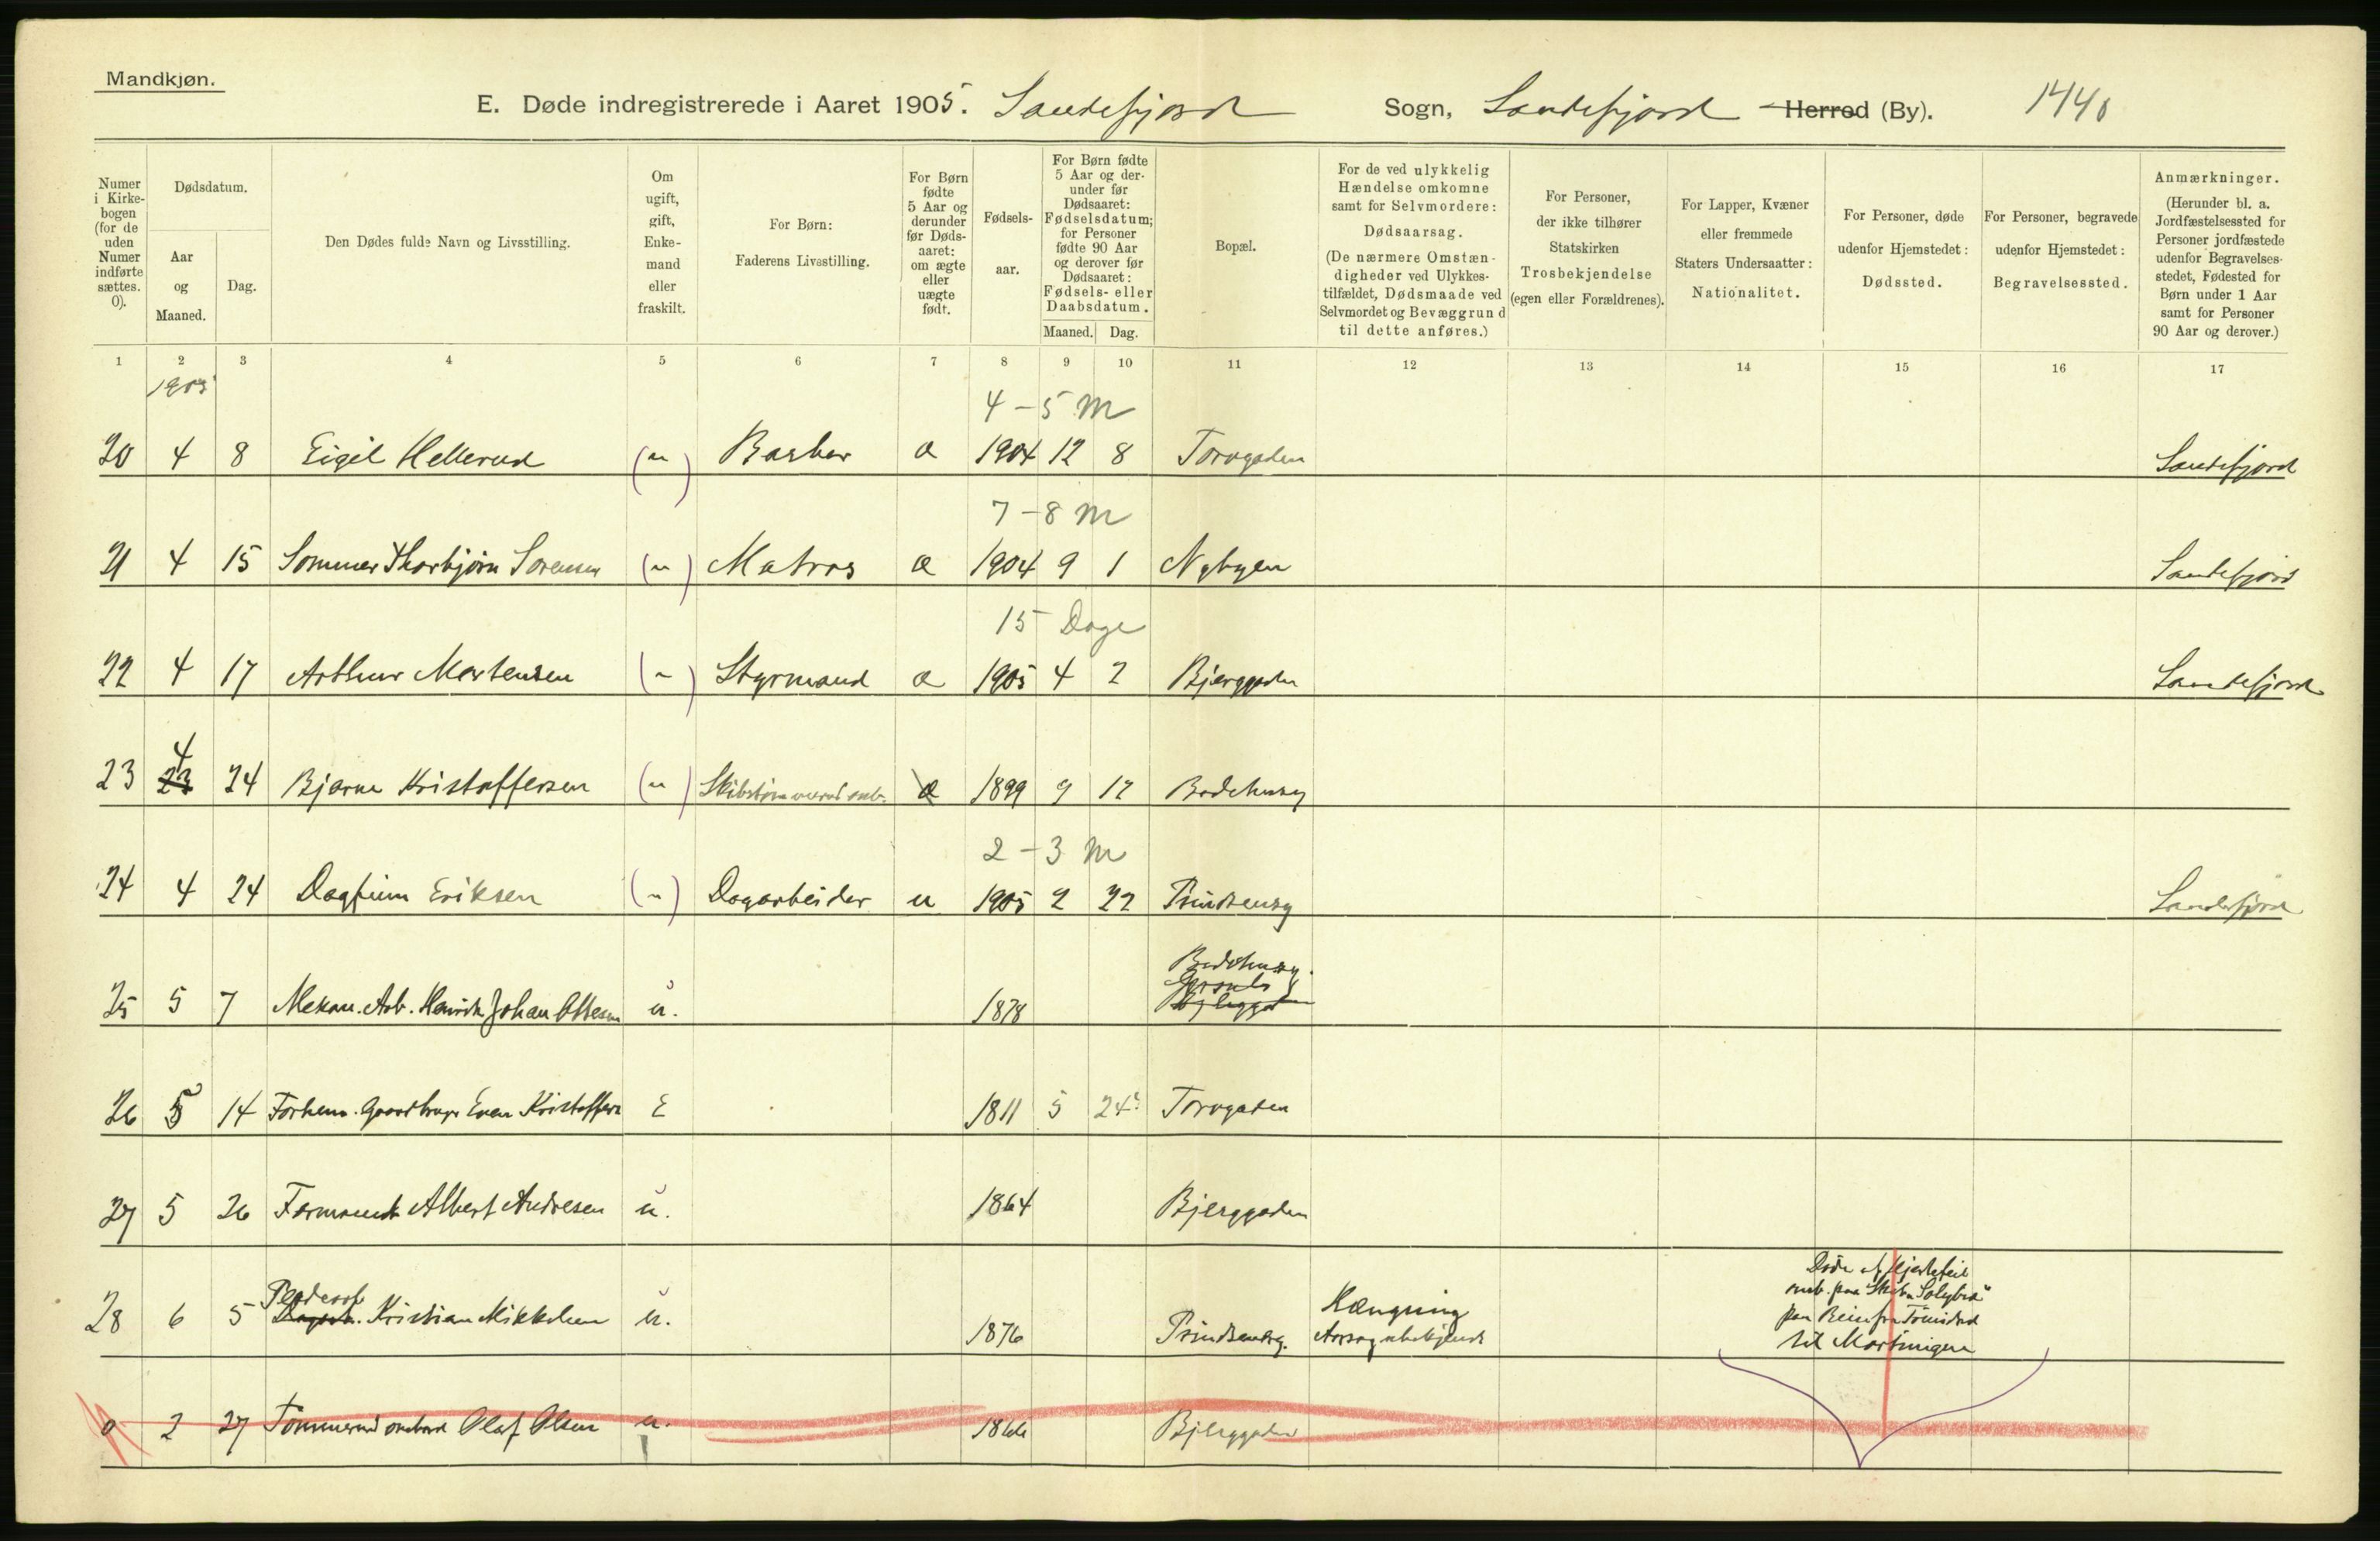 Mandkjøn.
E. Døde indregistrerede i Aaret 1905. Sandefjord Sogn, Sandefjord Herred (By). 1440
Numer i Kirkebogen (for de uden Numer indførte sættes. 0).
Dødsdatum.
Aar og Maaned.
Dag.
Den Dødes fulde Navn og Livsstilling.
Om ugift, gift, Enkemand eller fraskilt.
For Børn: Faderens Livsstilling.
For Børn fødte 5 Aar og derunder før Dødsaaret: om ægte eller uægte født.
Fødselsaar.
For Børn fødte 5 Aar og derunder før Dødsaaret: Fødselsdatum; for Personer fødte 90 Aar og derover før Dødsaaret: Fødsels- eller Daabsdatum.
Maaned. Dag.
Bopæl.
For de ved ulykkelig Hændelse omkomne samt for Selvmordere: Dødsaarsag. (De nærmere Omstændigheder ved Ulykkestilfældet, Dødsmaade ved Selvmordet og Bevæggrund til dette anføres.)
For Personer, der ikke tilhører Statskirken Trosbekjendelse (egen eller Forældrenes).
For Lapper, Kvæner eller fremmede Staters Undersaatter: Nationalitet.
For Personer, døde udenfor Hjemstedet: Dødssted.
For Personer, begravede udenfor Hjemstedet: Begravelsessted.
Anmærkninger. (Herunder bl. a. Jordfæstelsessted for Personer jordfæstede udenfor Begravelsesstedet, Fødested for Børn under 1 Aar samt for Personer 90 Aar og derover.)
1 2 3 4 5 6 7 8 9 10 11 12 13 14 15 16 17
1905
4 - 5 M
20 4 8 Eigil Hellerud (u) Barber æ 1904 12 8 Torvgaden Sandefjord
7 - 8 M
21 4 15 Sommer Thorbjørn Sørensen (u) Matros æ 1904 9 1 Nybyen Sandefjord
15 Dage
22 4 17 Arthur Mortensen (u) Styrmand æ 1905 4 2 Bjerggaden Sandefjord
4
23 23 24 Bjarne Kristoffersen (u) æ 1899 9 12
2 - 3 M
24 4 24 Dagfinn Eriksen (u) Dagarbeider u 1905 2 22 Prindsensg Sandefjord
Badehusg.
25 5 7 Mekan. Arb. Henrik Johan Ottesen u. 1878
26 5 14 Forhenv. Gaardbruger Even Kristoffers E 1811 5 24 Torvgaden
27 5 26 Formand Albert Andresen u. 1864 Bjerggaden
Døde af Hjertefeil
omb. paa Skibn "Solglyt"
paa Reise fra Trinidad
til Martinique
28 6 5 Kristian Mikkelsen u. 1876 Prindsensg. Hængning
Aarsag ubekjendt
0 2 27 Tømmermand ombord Olaf Olsen u. 1866 Bjerggaden